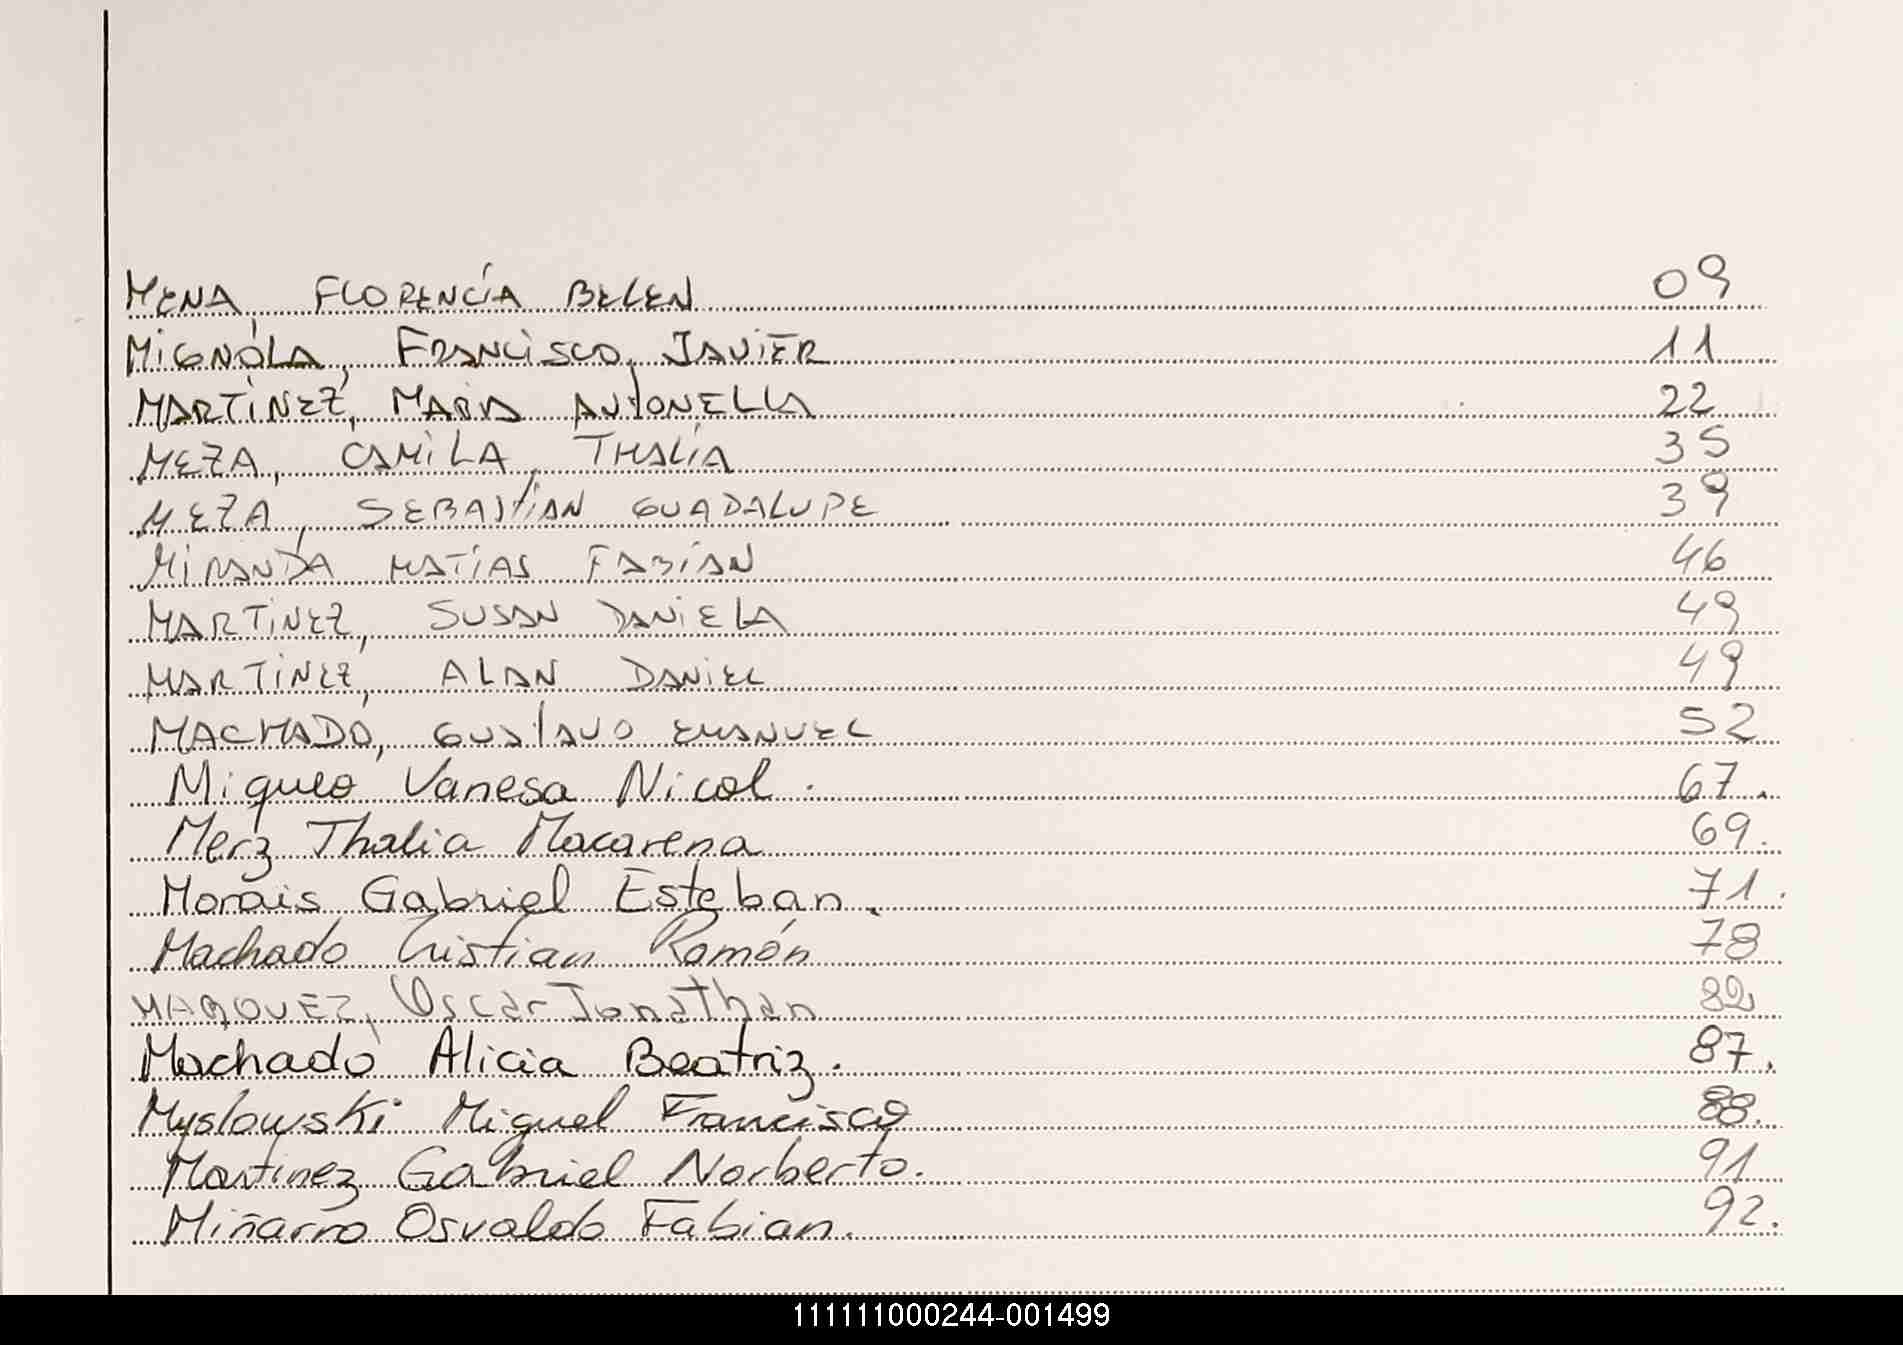 MENA, FLORENCIA BELEN 09
MIGNOLA, FRANCISCO JAVIER 11
MARTINEZ, MARIA ANTONELLA 22
MEZA, CAMILA THALIA 35
MEZA, SEBASTIAN GUADALUPE 39
MIRANDA MATÍAS FABIAN 46
MARTINEZ, SUSAN DANIELA 49
MARTINEZ, ALAN DANIEL 49
MACHADO, GUSTAVO EMANUEL 52
Miqueo Vanesa Nicol. 67.
Merz Thalia Macarena 69.
Morais Gabriel Esteban. 71.
Machado Cristian Ramón 78
MARQUEZ, Oscar Jonathan 82
Machado Alicia Beatriz. 87.
Myslowski Miguel Francisco 88.
Martinez Gabriel Norberto. 91
Miñarro Osvaldo Fabian. 92.
111111000244-001499